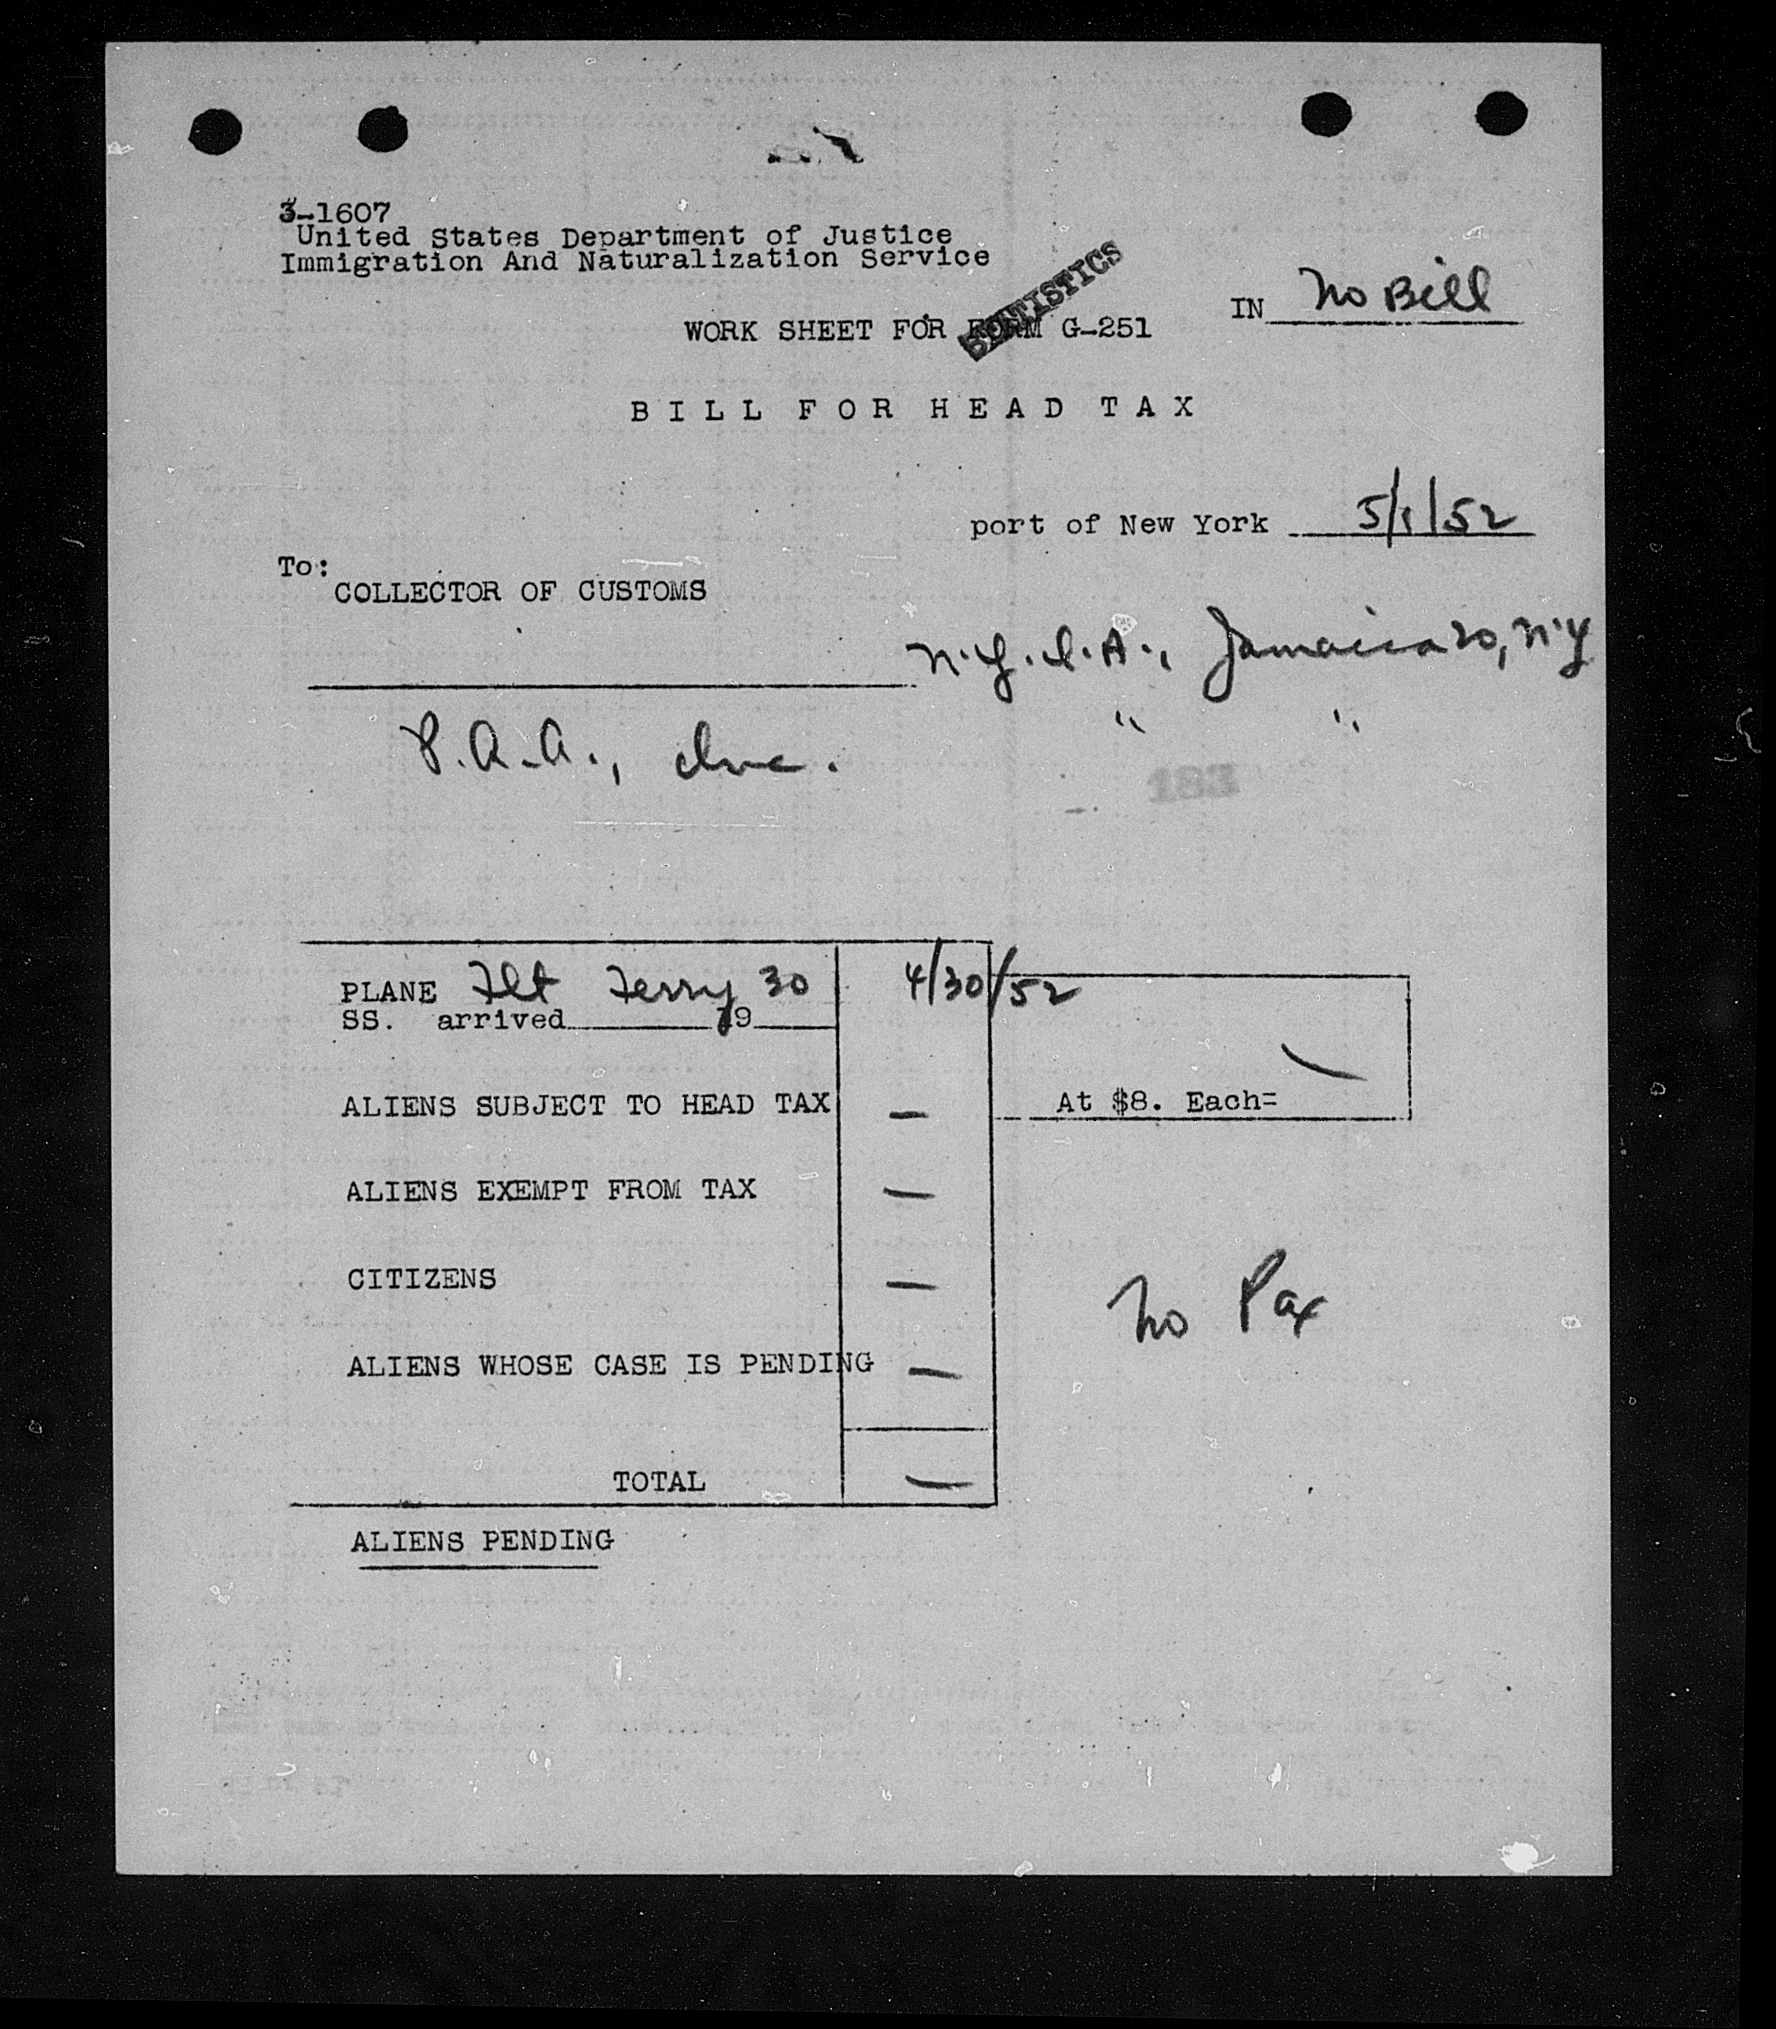 3-1607
United States Department of Justice
Immigration And Naturalization Service
STATISTICS
IN No Bill
WORK SHEET FOR FORM G-251
BILL FOR HEAD TAX
port of New York 5/1/52
To:
COLLECTOR OF CUSTOMS
N.Y.I.A., Jamaica 30, N.Y
P.A.A., Inc. " "
183
PLANE Flt Ferry 30 4/30/52
SS. arrived 19
ALIENS SUBJECT TO HEAD TAX — At $8. Each= —
ALIENS EXEMPT FROM TAX —
CITIZENS —
No Pax
ALIENS WHOSE CASE IS PENDING —
TOTAL —
ALIENS PENDING